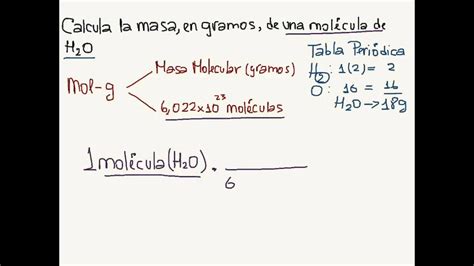 Calcula la masa, en gramos, de una molécula de
H₂O
Mol-g
Masa Molecular (gramos)
6,022x10²³ moléculas
Tabla Periódica
H₂: 1(2) = 2
O: 16 = 16
H₂O → 18g
1 molécula (H₂O) .
6